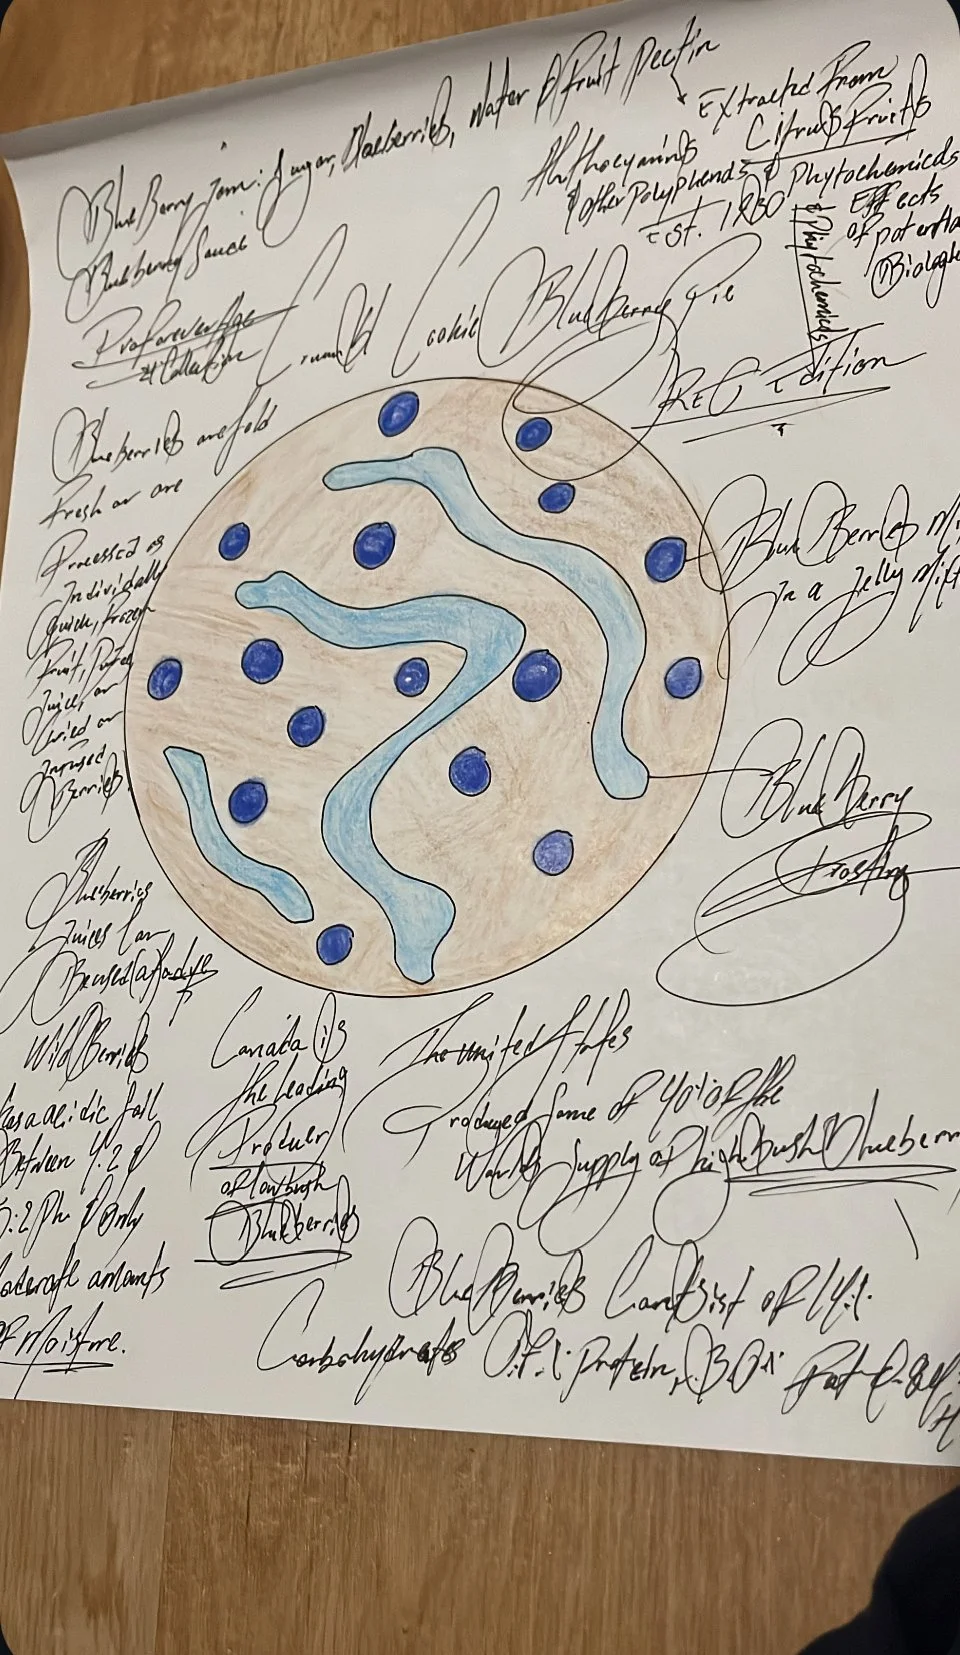 BlueBerry Jam: Sugar, Blueberries, Water & fruit Pectin
Extracted From
Citrus Fruits
Blueberry Sauce
Anthocyanins
& other Polyphenols & Phytochemicals
Est. 1980
Effects
of potential
Biologic
& Phytochemicals
ProForeverAge
Collection
Crumbl Cookie BlueBerry Pie
REG Edition
Blueberries are sold
Fresh or are
Processed as
Individually
quick, Frozen
Fruit, Puree
Juice, or
Dried or
Infused
Berries
BlueBerries
In a Jelly
BlueBerry
Frosting
Blueberries
Juices Can
Be used (as) a dye
Wild Berries
has a acidic Soil
Between 4.2 &
5.2 Ph & Only
Moderate amounts
of Moisture.
Canada is
the leading
Producer
of lowbush
BlueBerries
The United States
Produced Some of 40% of the
Worlds Supply of highbush Blueberr
BlueBerries Consist of 14%
Carbohydrates 0.7% Protein, 0.3% Fat &